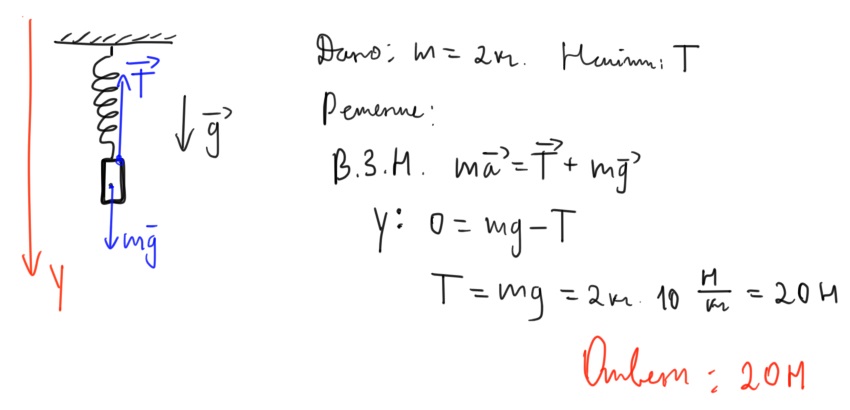 Дано: m = 2кг. Найти: T
Решение:
В.З.Н. ma⃗ = T⃗ + mg⃗
Y: 0 = mg - T
T = mg = 2кг · 10 Н/кг = 20 Н
Ответ: 20Н
T⃗
g⃗
mg⃗
Y